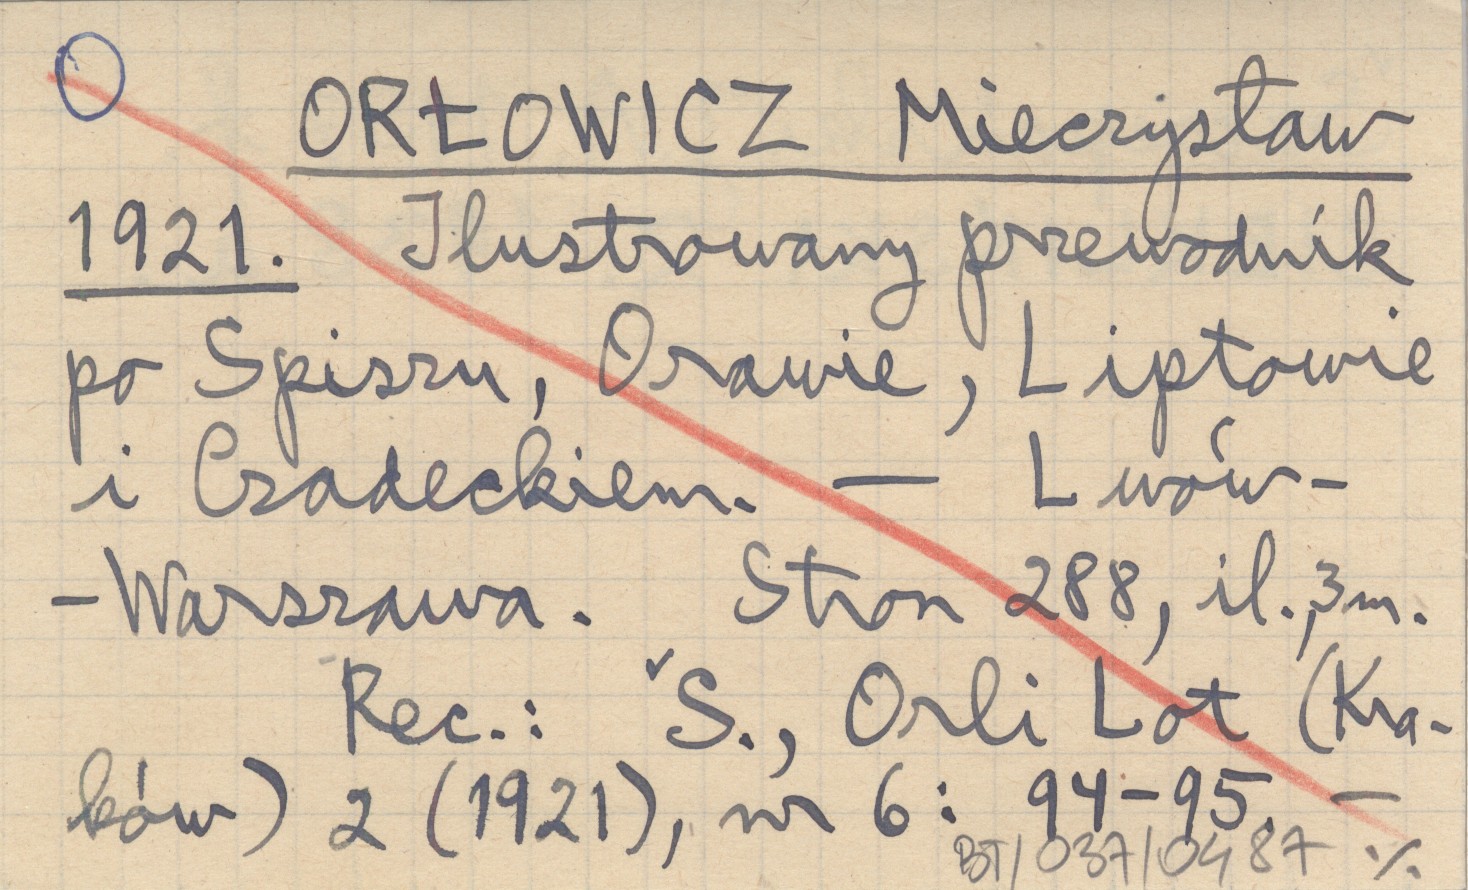 ORŁOWICZ Mieczysław
1921. Ilustrowany przewodnik
po Spiszu, Orawie, Liptowie
i Czadeckiem. — Lwów-
-Warszawa. Stron 288, il., 3 m.
Rec.: S., Orli Lot (Kra-
ków) 2 (1921), nr 6: 94-95. —
BT/037/0487 ·/.